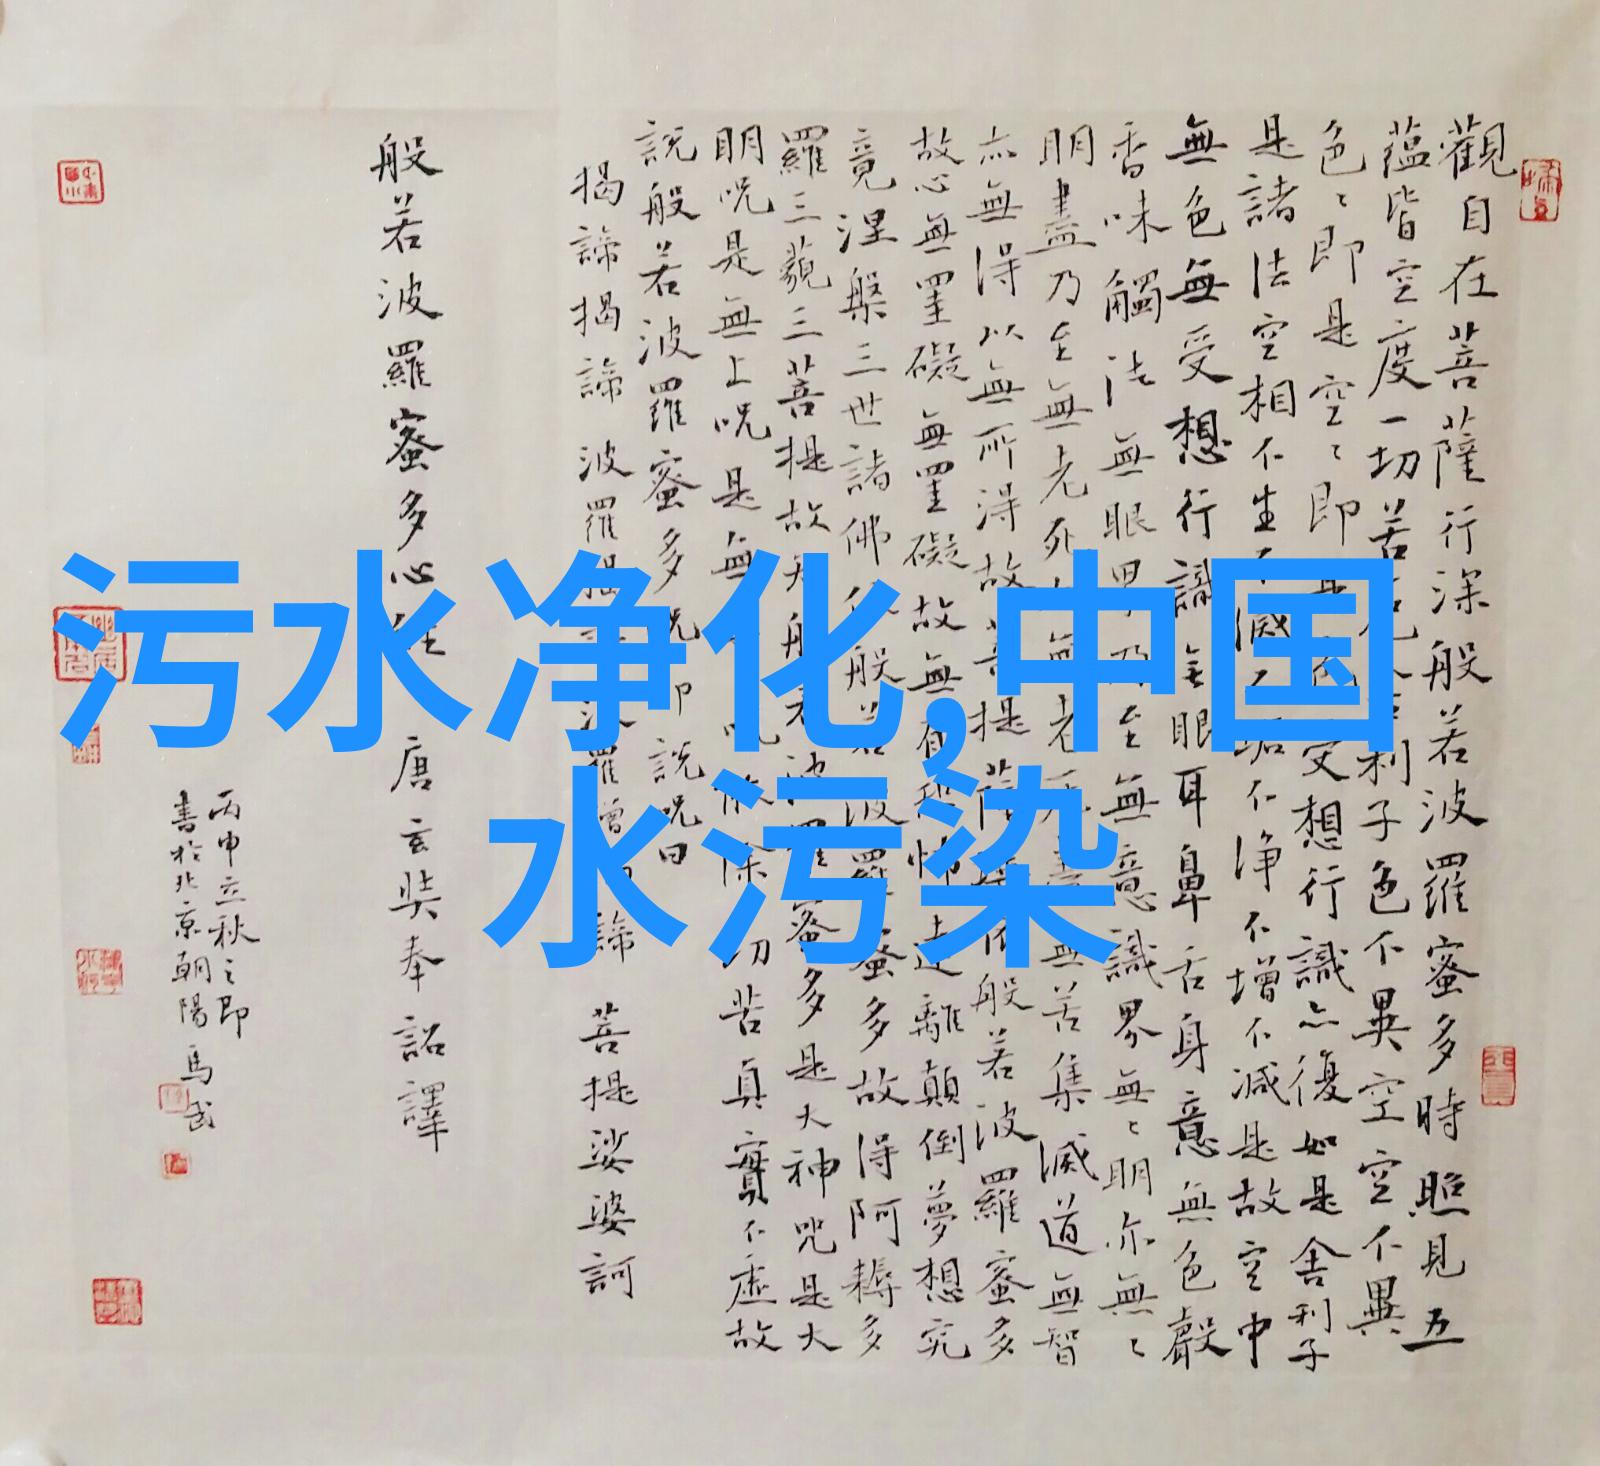 污水净化,中国
水污染
觀自在菩薩行深般若波羅蜜多時照見五
蘊皆空度一切苦利子色不異空空不異
色〻即是空〻即是受想行識亦復如是舍利子
是諸法空相不生不滅不垢不净不增不減是故空中
無色無受想行識無眼耳鼻舌身意無色聲
香味觸法無眼界乃至無意識界無〻明亦無〻
明盡乃至無老死無老死盡無苦集滅道無智
亦無得以無所得故菩提薩依般若波羅蜜多
故心無罣礙無罣礙故無有怖遠離顛倒夢想究
竟涅槃三世諸佛依般若波羅蜜多故得阿耨多
羅三藐三菩提故知般若波羅蜜多是大神咒是大
明咒是無上咒是無咒能除切苦真實不虛故
說般若波羅蜜多咒即說咒曰
揭諦揭諦 波羅揭 波羅僧諦 菩提娑婆訶
般若波羅蜜多心經 唐玄奘奉詔譯
丙申立秋之即
書於北京朝陽馬武